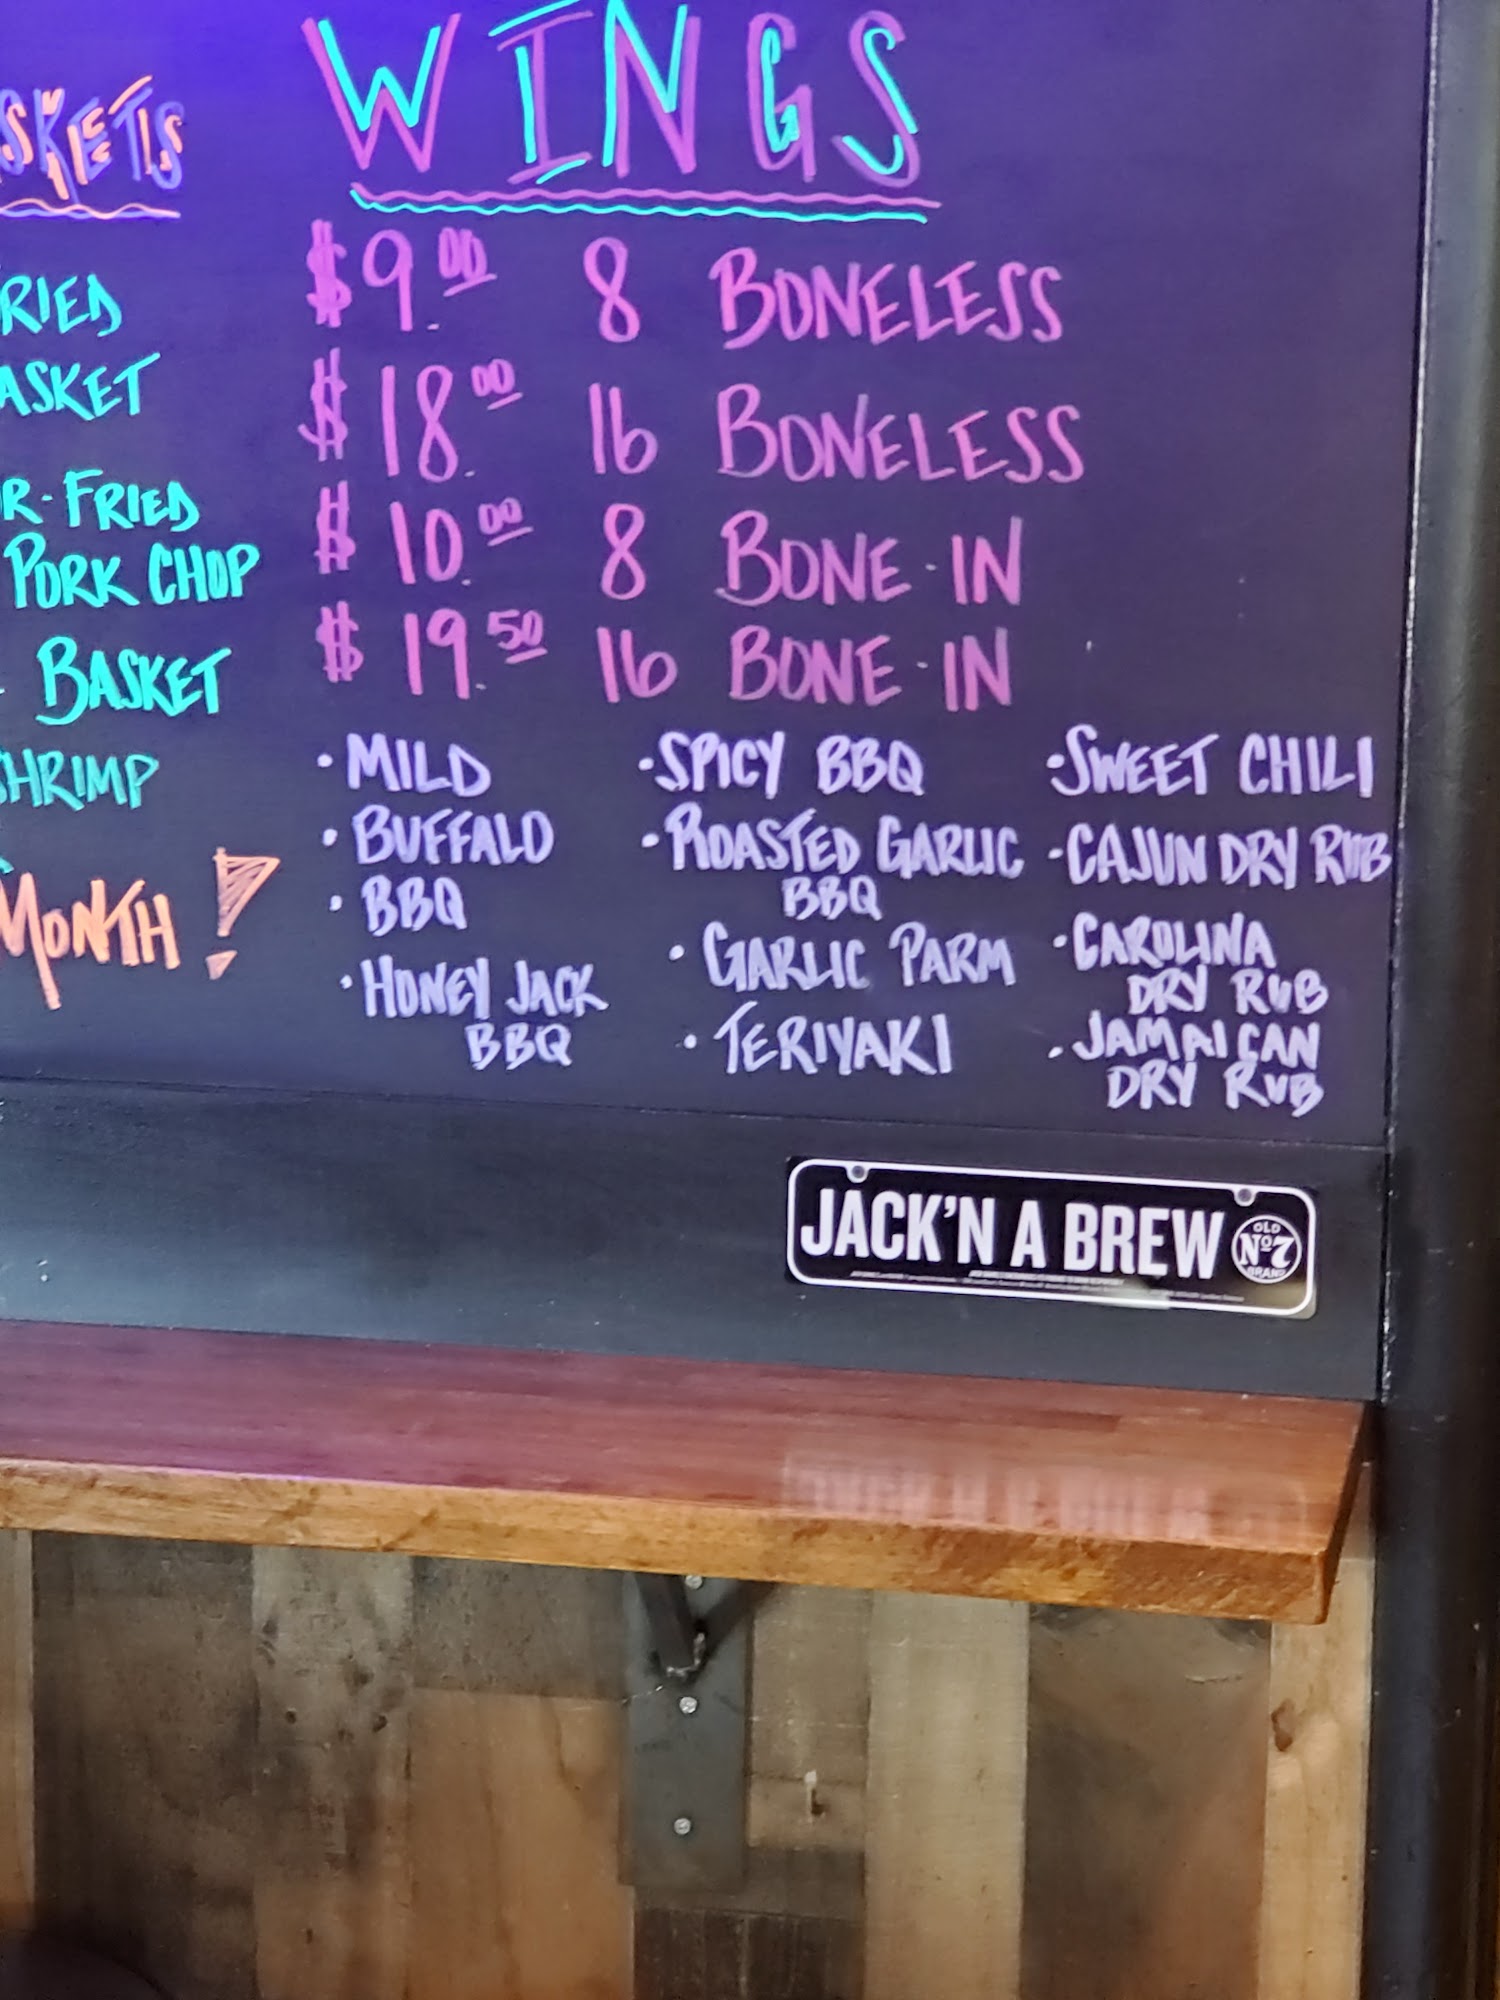 WINGS
$9.00 8 BONELESS
$18.00 16 BONELESS
$10.00 8 BONE-IN
$19.50 16 BONE-IN
• MILD
• BUFFALO
• BBQ
• HONEY JACK
BBQ
• SPICY BBQ
• ROASTED GARLIC
BBQ
• GARLIC PARM
• TERIYAKI
• SWEET CHILI
• CAJUN DRY RUB
• CAROLINA
DRY RUB
• JAMAICAN
DRY RUB
SKETS
RIED
ASKET
R-FRIED
PORK CHOP
BASKET
SHRIMP
MONTH!
JACK'N A BREW
OLD
No 7
BRAND